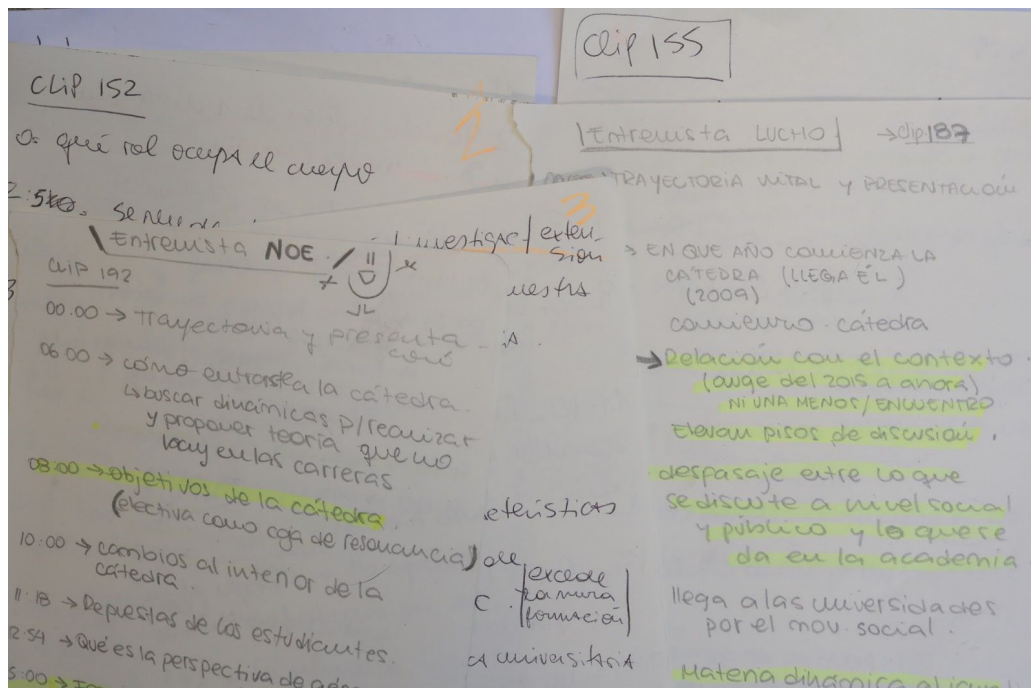 CLIP 152
qué rol ocupa el cuerpo
2
Entrevista NOE
3
CLIP 192
00.00 → Trayectoria y presenta
ción
06:00 → cómo entraste a la cátedra.
↳ buscar dinámicas p/realizar
y proponer teoría que no
hay en las carreras
08:00 → objetivos de la cátedra
(electiva como caja de resonancia)
10:00 → cambios al interior de la
cátedra.
11:18 → Depuestas de los estudiantes.
2:54 → Qué es la perspectiva de
5:00 →
investigac/exten-
sión
uestra
eterísticas
excede
formación
universitaria
Clip 155
Entrevista LUCHO → clip 187
TRAYECTORIA VITAL Y PRESENTACIÓN
→ EN QUE AÑO COMIENZA LA
CÁTEDRA (LLEGA ÉL)
(2009)
comienzo cátedra
→ Relación con el contexto
(auge del 2015 a ahora)
NI UNA MENOS/ENCUENTRO
Elevan pisos de discusión.
despasaje entre lo que
se discute a nivel social
y público y lo que se
da en la academia
llega a las universidades
por el mov. social.
Materia dinámica al